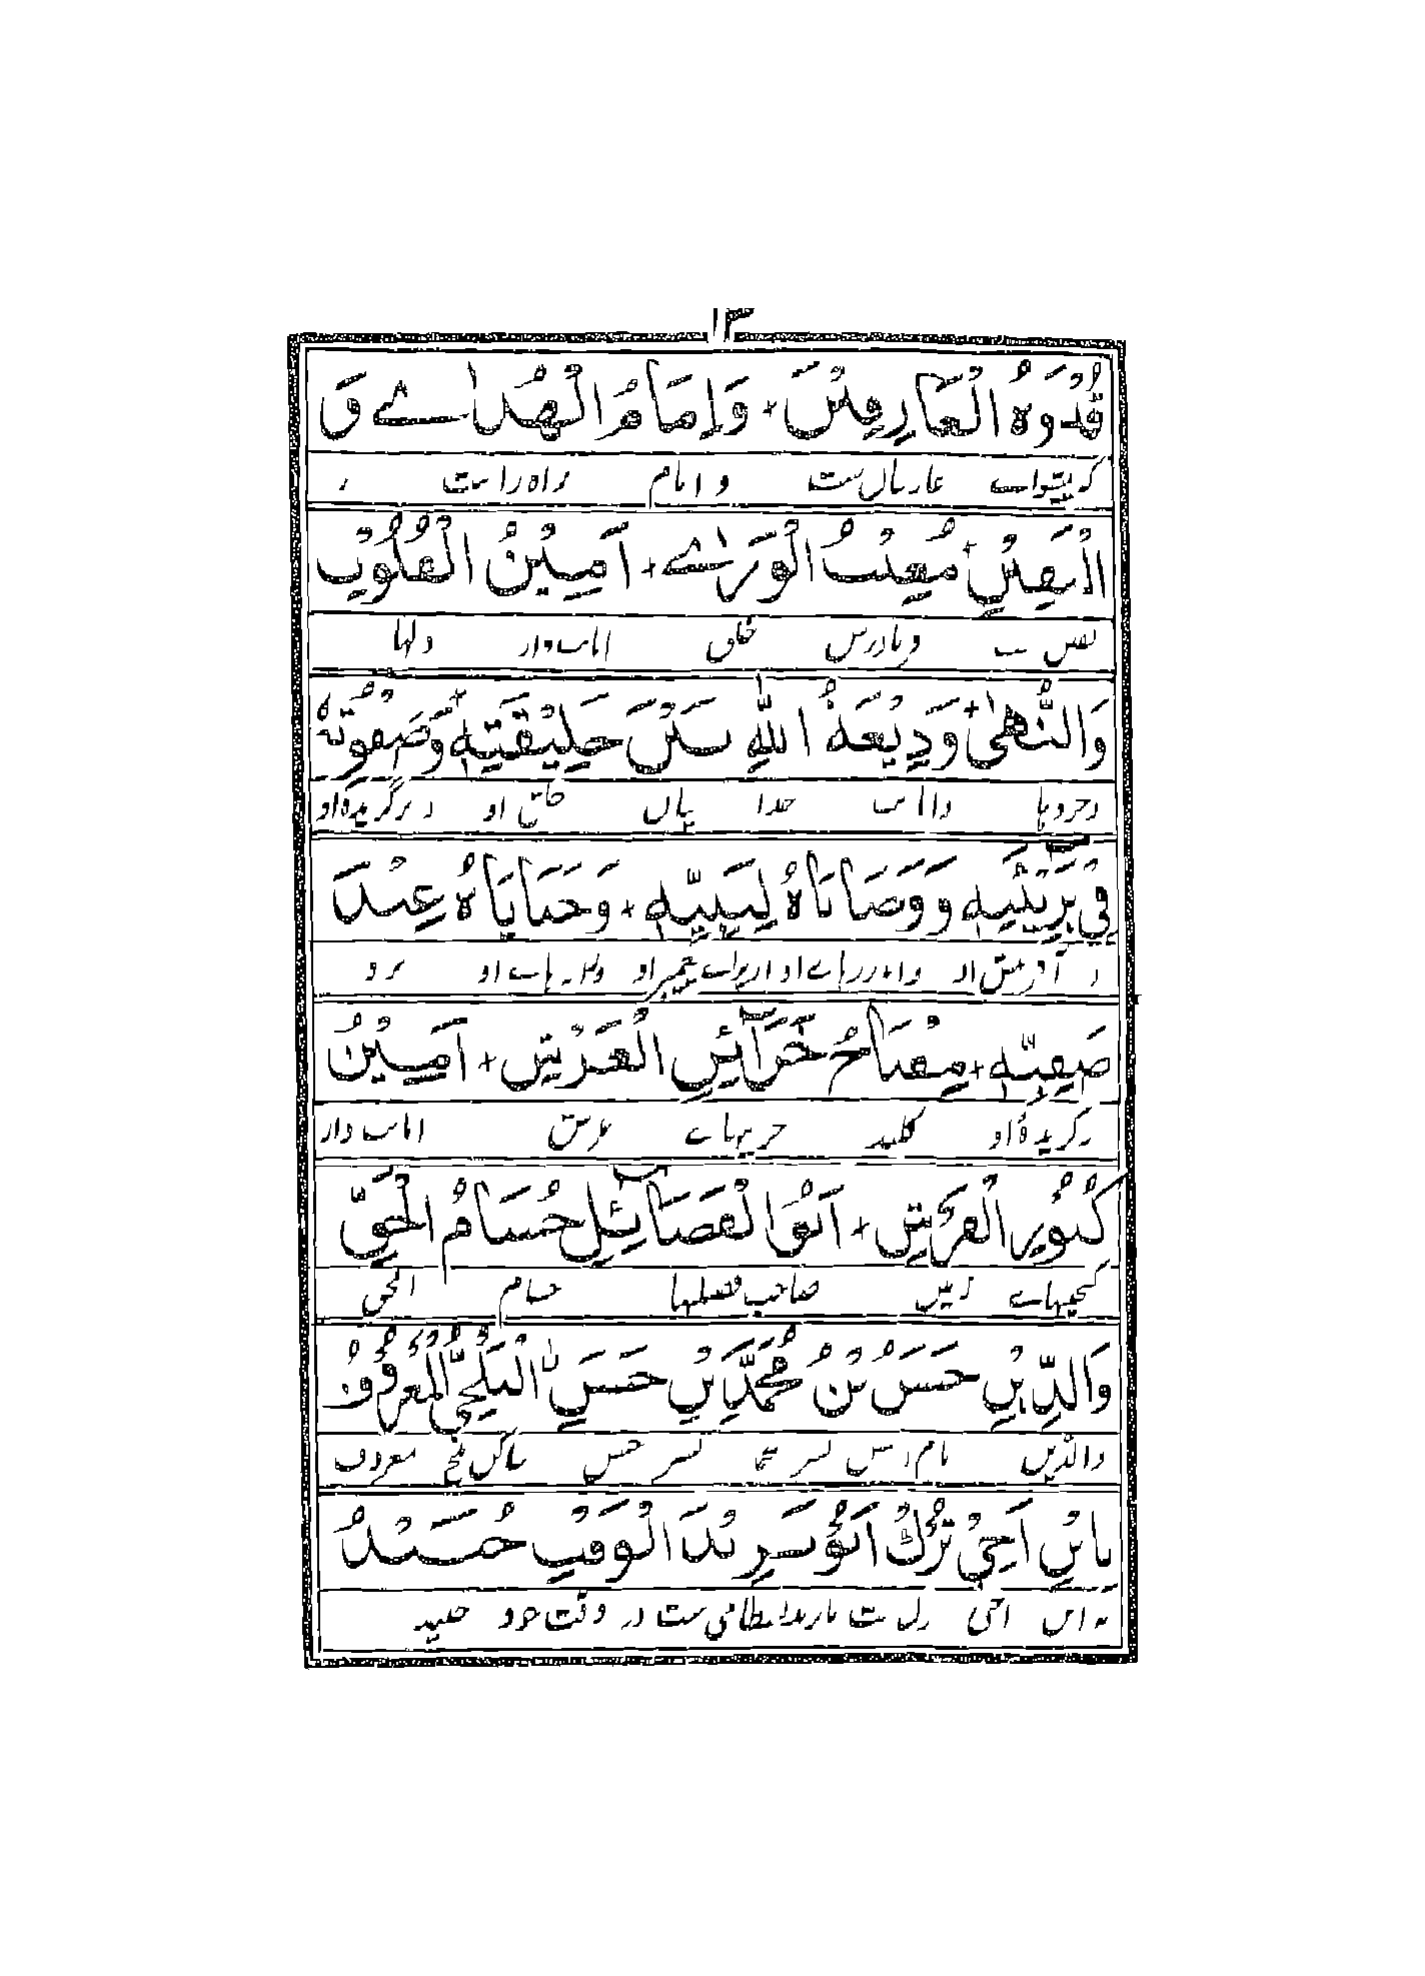 ۱۳
قُدْوَةُ الْعَارِفِيْنَ + وَاِمَامُ الْهُدٰے وَ
کہ پیشواے عارفان ست و امام راہ راست و
الْيَقِيْنِ + مُغِيْثُ الْوَرٰے + اَمِيْنُ الْقُلُوْبِ
یقین ست فریادرس خلق امانت دار دلہا
وَالنُّهٰى + وَدِيْعَةُ اللّٰهِ بَيْنَ خَلِيْقَتِهٖ + وَصَفْوَتُهٗ
و خردہا و امانت خدا میان خلق او و برگزیدۂ او
فِيْ بَرِيَّتِهٖ وَوَصَايَاهُ لِنَبِيِّهٖ + وَخَبَايَاهُ عِنْدَ
در آفرینش او و اندرزہاے او از براے پیغمبر او او نزد
صَفِيِّهٖ + مِفْتَاحُ خَزَآئِنِ الْعَرْشِ + اَمِيْنُ
برگزیدۂ او کلید خزینہاے عرش امانت دار
كُنُوْزِ الْفَرْشِ + اَبُو الْفَضَآئِلِ حُسَامُ الْحَقِّ
گنجہاے زمین صاحب فضلہا حسام الحق
وَالدِّيْنِ حَسَنُ بْنُ مُحَمَّدِ بْنِ حَسَنٍ الْبَلْخِيُّ الْمَعْرُوْفُ
والدین نام حسن پسر محمد پسر حسن بلخ معروف
بِابْنِ اَخِيْ تُرْكٍ اَبُوْ يَزِيْدَ الْوَقْتِ جُنَيْدُ
بہ ابن اخی ترک ست بایزید بسطامی ست در وقت خود جنید